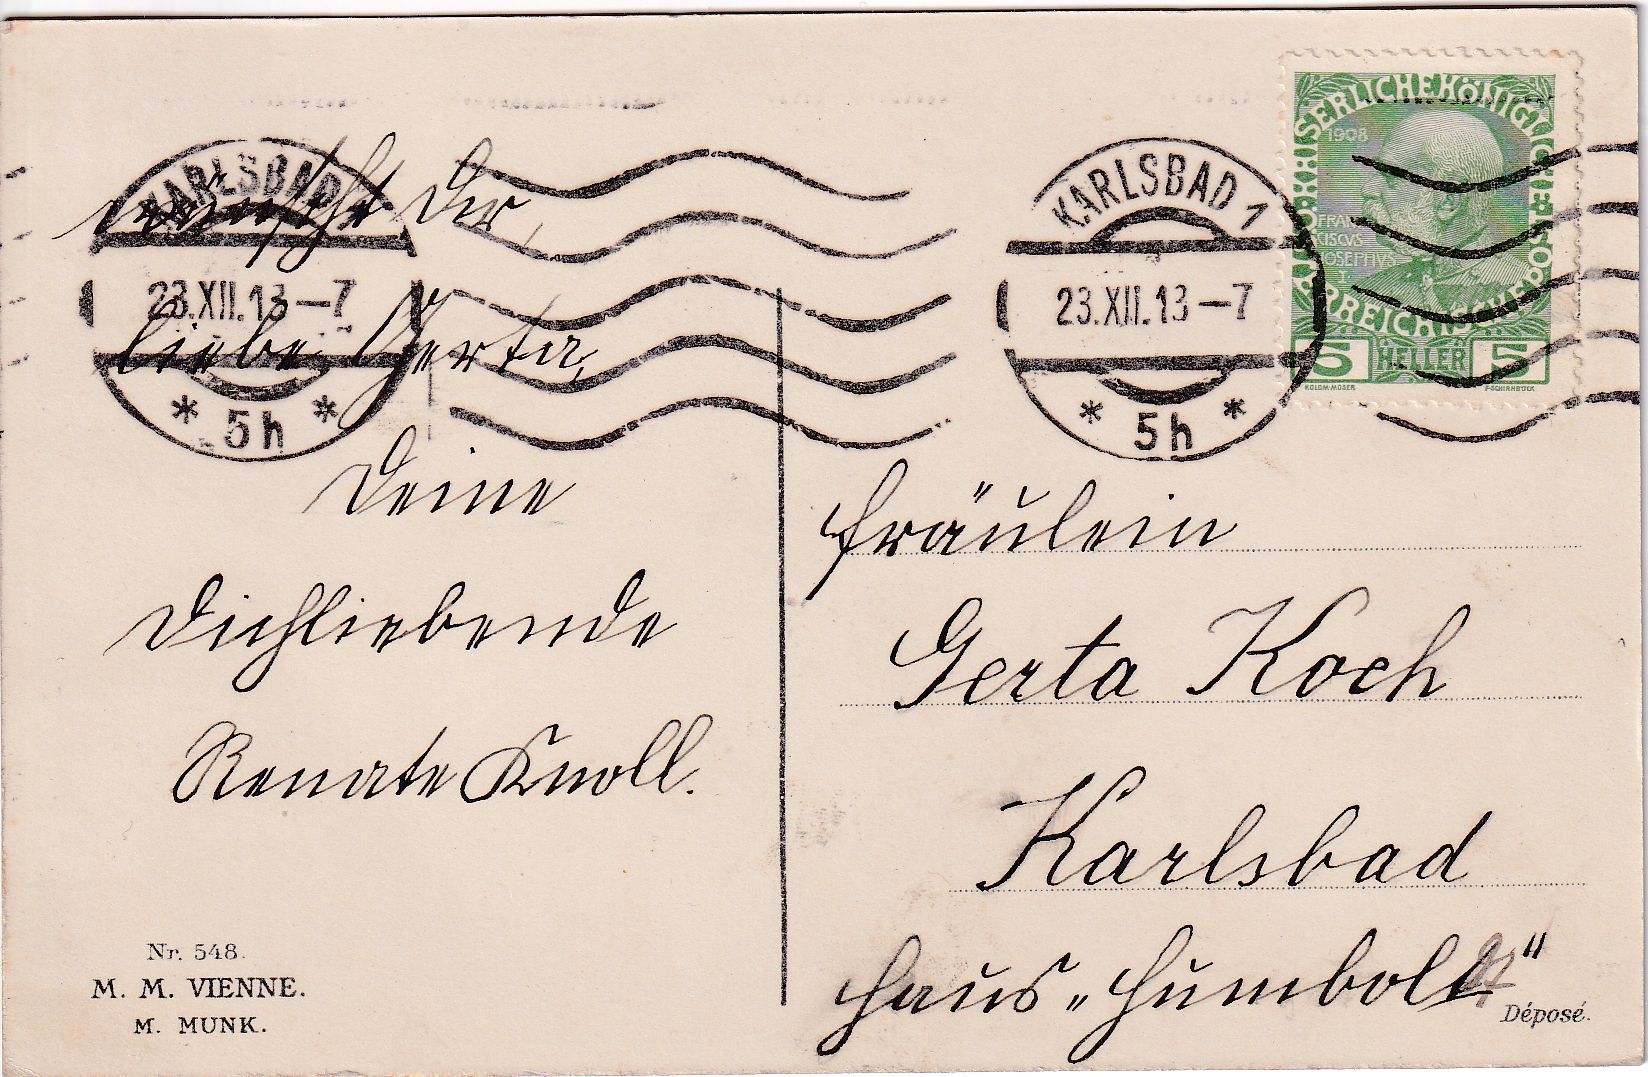 wünscht Dir,
liebe Gerta,
Deine
Dichliebende
Renate Knoll.
Nr. 548.
M. M. VIENNE.
M. MUNK.
KARLSBAD
23.XII.13-7
* 5h *
KARLSBAD 1
23.XII.13-7
* 5h *
KAISERLICHE KÖNIGLICHE ÖSTERREICHISCHE POST
1908
FRAN
CISCVS
IOSEPHVS
I.
5 HELLER 5
KOLOM·MOSER F·SCHIRNBÖCK
Fräulein
Gerta Koch
Karlsbad
Haus „Humboldt"
Déposé.